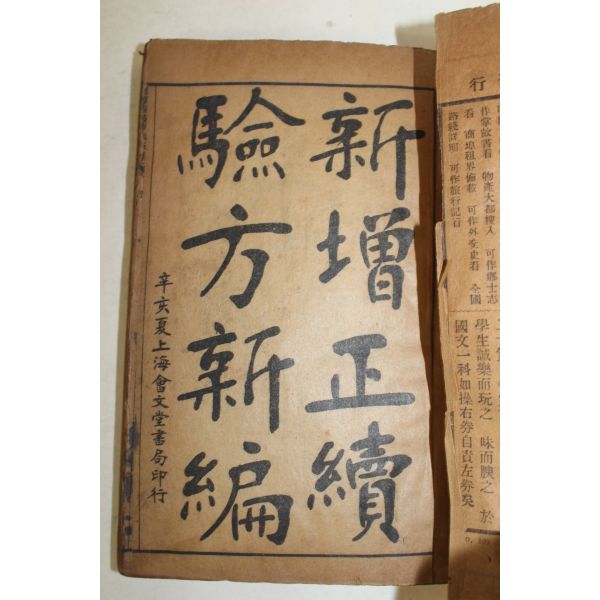 新增正續
驗方新編
辛亥夏上海會文堂書局印行
行
作掌故書看　物產大都搜入　可作鄉士志
看　商埠租界備載　可作外交史看　全國
路綫詳明　可作旅行記看
學生誠樂而玩之　味而腴之　於
國文一科如操右券自責左券矣